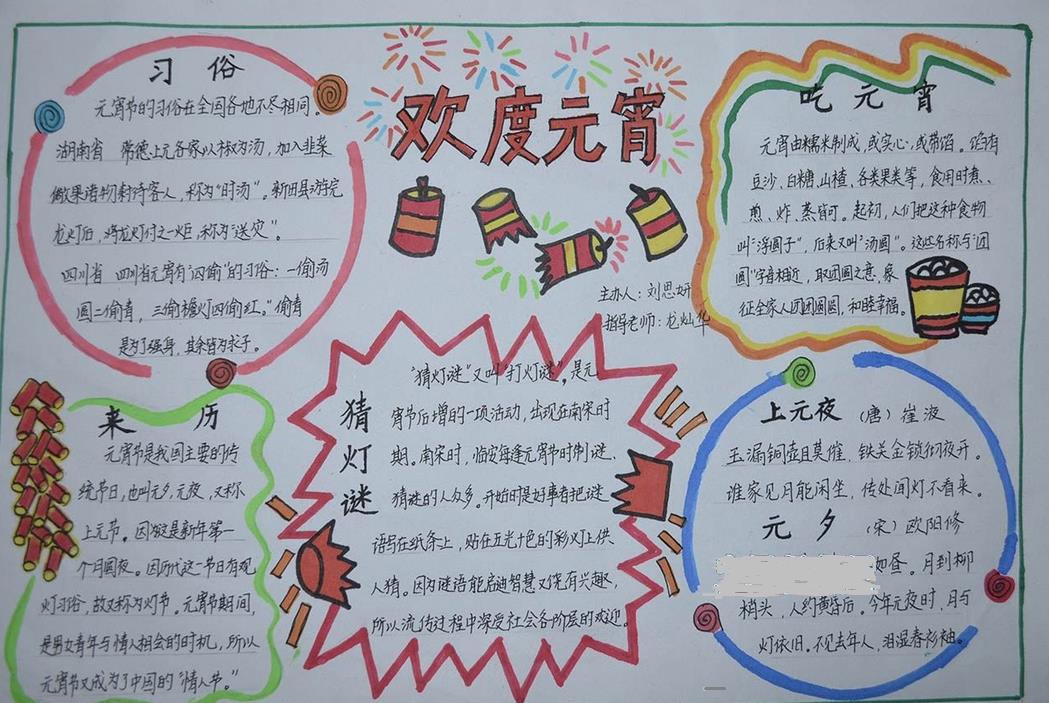 欢度元宵
主办人：刘思妍
指导老师：龙灿华
习俗
元宵节的习俗在全国各地不尽相同。
湖南省 常德上元各家以椒为汤，加入韭菜
傲果诸物制待客人，称为“时汤”。新田县游完
龙灯后，将龙灯付之一炬，称为“送灾”。
四川省 四川省元宵有“四偷”的习俗：一偷汤
圆二偷青，三偷檐灯四偷红。”偷青
是为了强身，其余皆为求子。
吃元宵
元宵由糯米制成，或实心，或带馅。馅有
豆沙、白糖、山楂、各类果类等，食用时煮、
煎、炸、蒸皆可。起初，人们把这种食物
叫“浮圆子”，后来又叫“汤圆”。这些名称与“团
圆”字音相近，取团圆之意，象
征全家人团团圆圆，和睦幸福。
来历
元宵节是我国主要的传
统节日，也叫元夕，元夜，又称
上元节。因为这是新年第一
个月圆夜。因历代这一节日有观
灯习俗，故又称为灯节。元宵节期间，
是男女青年与情人相会的时机，所以
元宵节又成为了中国的“情人节。”
猜灯谜
“猜灯谜”又叫“打灯谜”。是元
宵节后增的一项活动，出现在南宋时
期。南宋时，临安每逢元宵节时制谜、
猜谜的人众多。开始时是好事者把谜
语写在纸条上，贴在五光十色的彩灯上供
人猜。因为谜语能启迪智慧又饶有兴趣，
所以流传过程中深受社会各阶层的欢迎。
上元夜（唐）崔液
玉漏铜壶且莫催，铁关金锁彻夜开。
谁家见月能闲坐，传处闻灯不看来。
元夕（宋）欧阳修
如昼。月到柳
梢头，人约黄昏后。今年元夜时，月与
灯依旧。不见去年人，泪湿春衫袖。